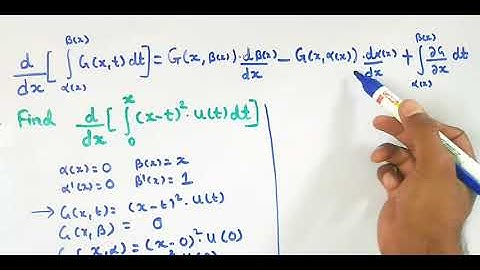 d/dx [ ∫_{α(x)}^{β(x)} G(x,t) dt ] = G(x, β(x)) · dβ(x)/dx − G(x, α(x)) · dα(x)/dx + ∫_{α(x)}^{β(x)} ∂G/∂x dt
Find d/dx [ ∫_0^x (x-t)² · u(t) dt ]
α(x) = 0 β(x) = x
α'(x) = 0 β'(x) = 1
→ G(x,t) = (x-t)² · u(t)
G(x, β) = 0
G(x, α) = (x-0)² · u(0)